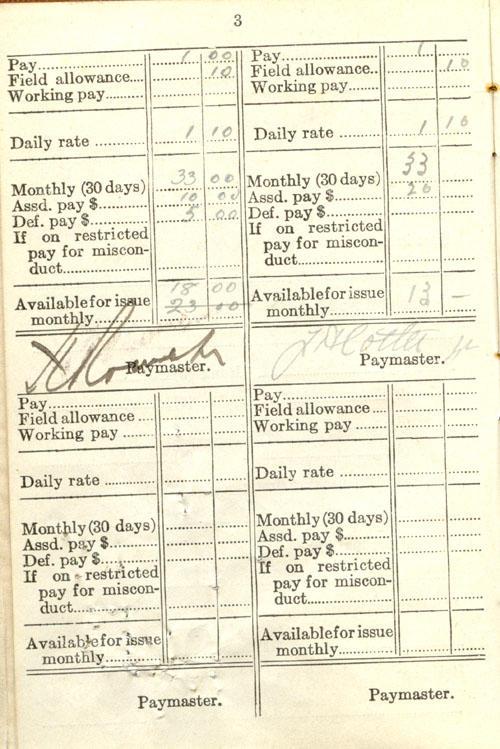 3
Pay.................. 1 00
Field allowance.... 10
Working pay........
Daily rate .......... 1 10
Monthly (30 days) 33 00
Assd. pay $........ 10 00
Def. pay $.......... 5 00
If on restricted
pay for miscon-
duct..................
18 00
Available for issue
monthly.......... 23 00
Paymaster.
Pay.................. 1
Field allowance.. 10
Working pay......
Daily rate .......... 1 10
33
Monthly (30 days)
Assd. pay $........ 20
Def. pay $..........
If on restricted
pay for miscon-
duct..................
Available for issue 13 —
monthly..........
Paymaster.
Pay..................
Field allowance ..
Working pay ......
Daily rate ..........
Monthly (30 days)
Assd. pay $........
Def. pay $..........
If on restricted
pay for miscon-
duct..................
Available for issue
monthly..........
Paymaster.
Pay..................
Field allowance ....
Working pay ......
Daily rate ..........
Monthly (30 days)
Assd. pay $........
Def. pay $..........
If on restricted
pay for miscon-
duct..................
Available for issue
monthly..........
Paymaster.